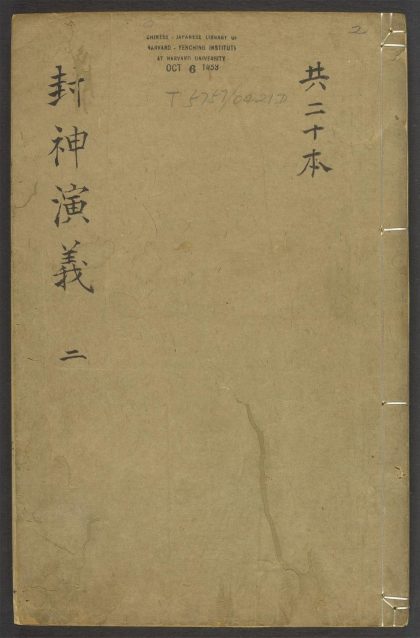 共二十本
封神演義 二
CHINESE - JAPANESE LIBRARY OF
HARVARD - YENCHING INSTITUTE
AT HARVARD UNIVERSITY
OCT 6 1953
2